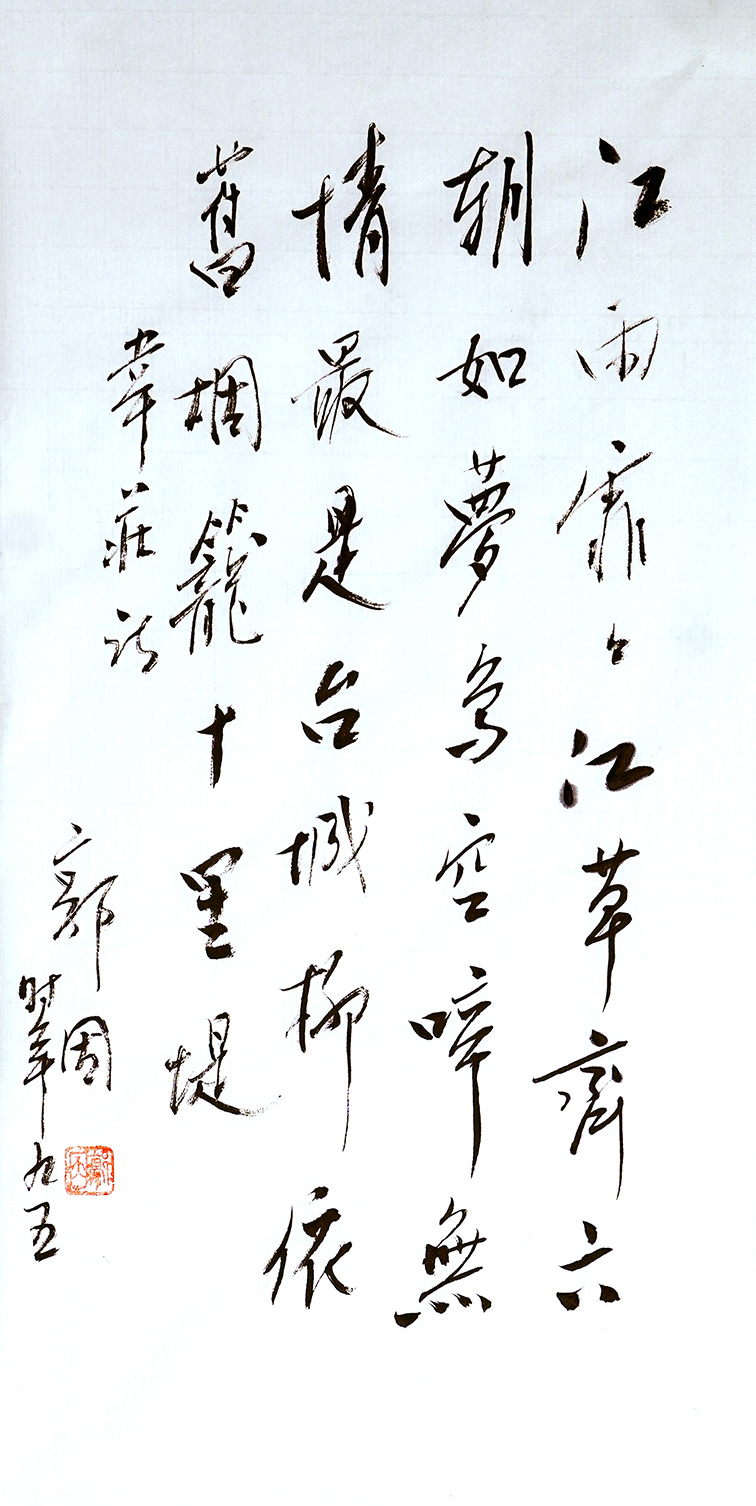 江雨霏々江草齊六
朝如夢鳥空啼無
情最是台城柳依
舊烟籠十里堤
韋莊詩
时年九五